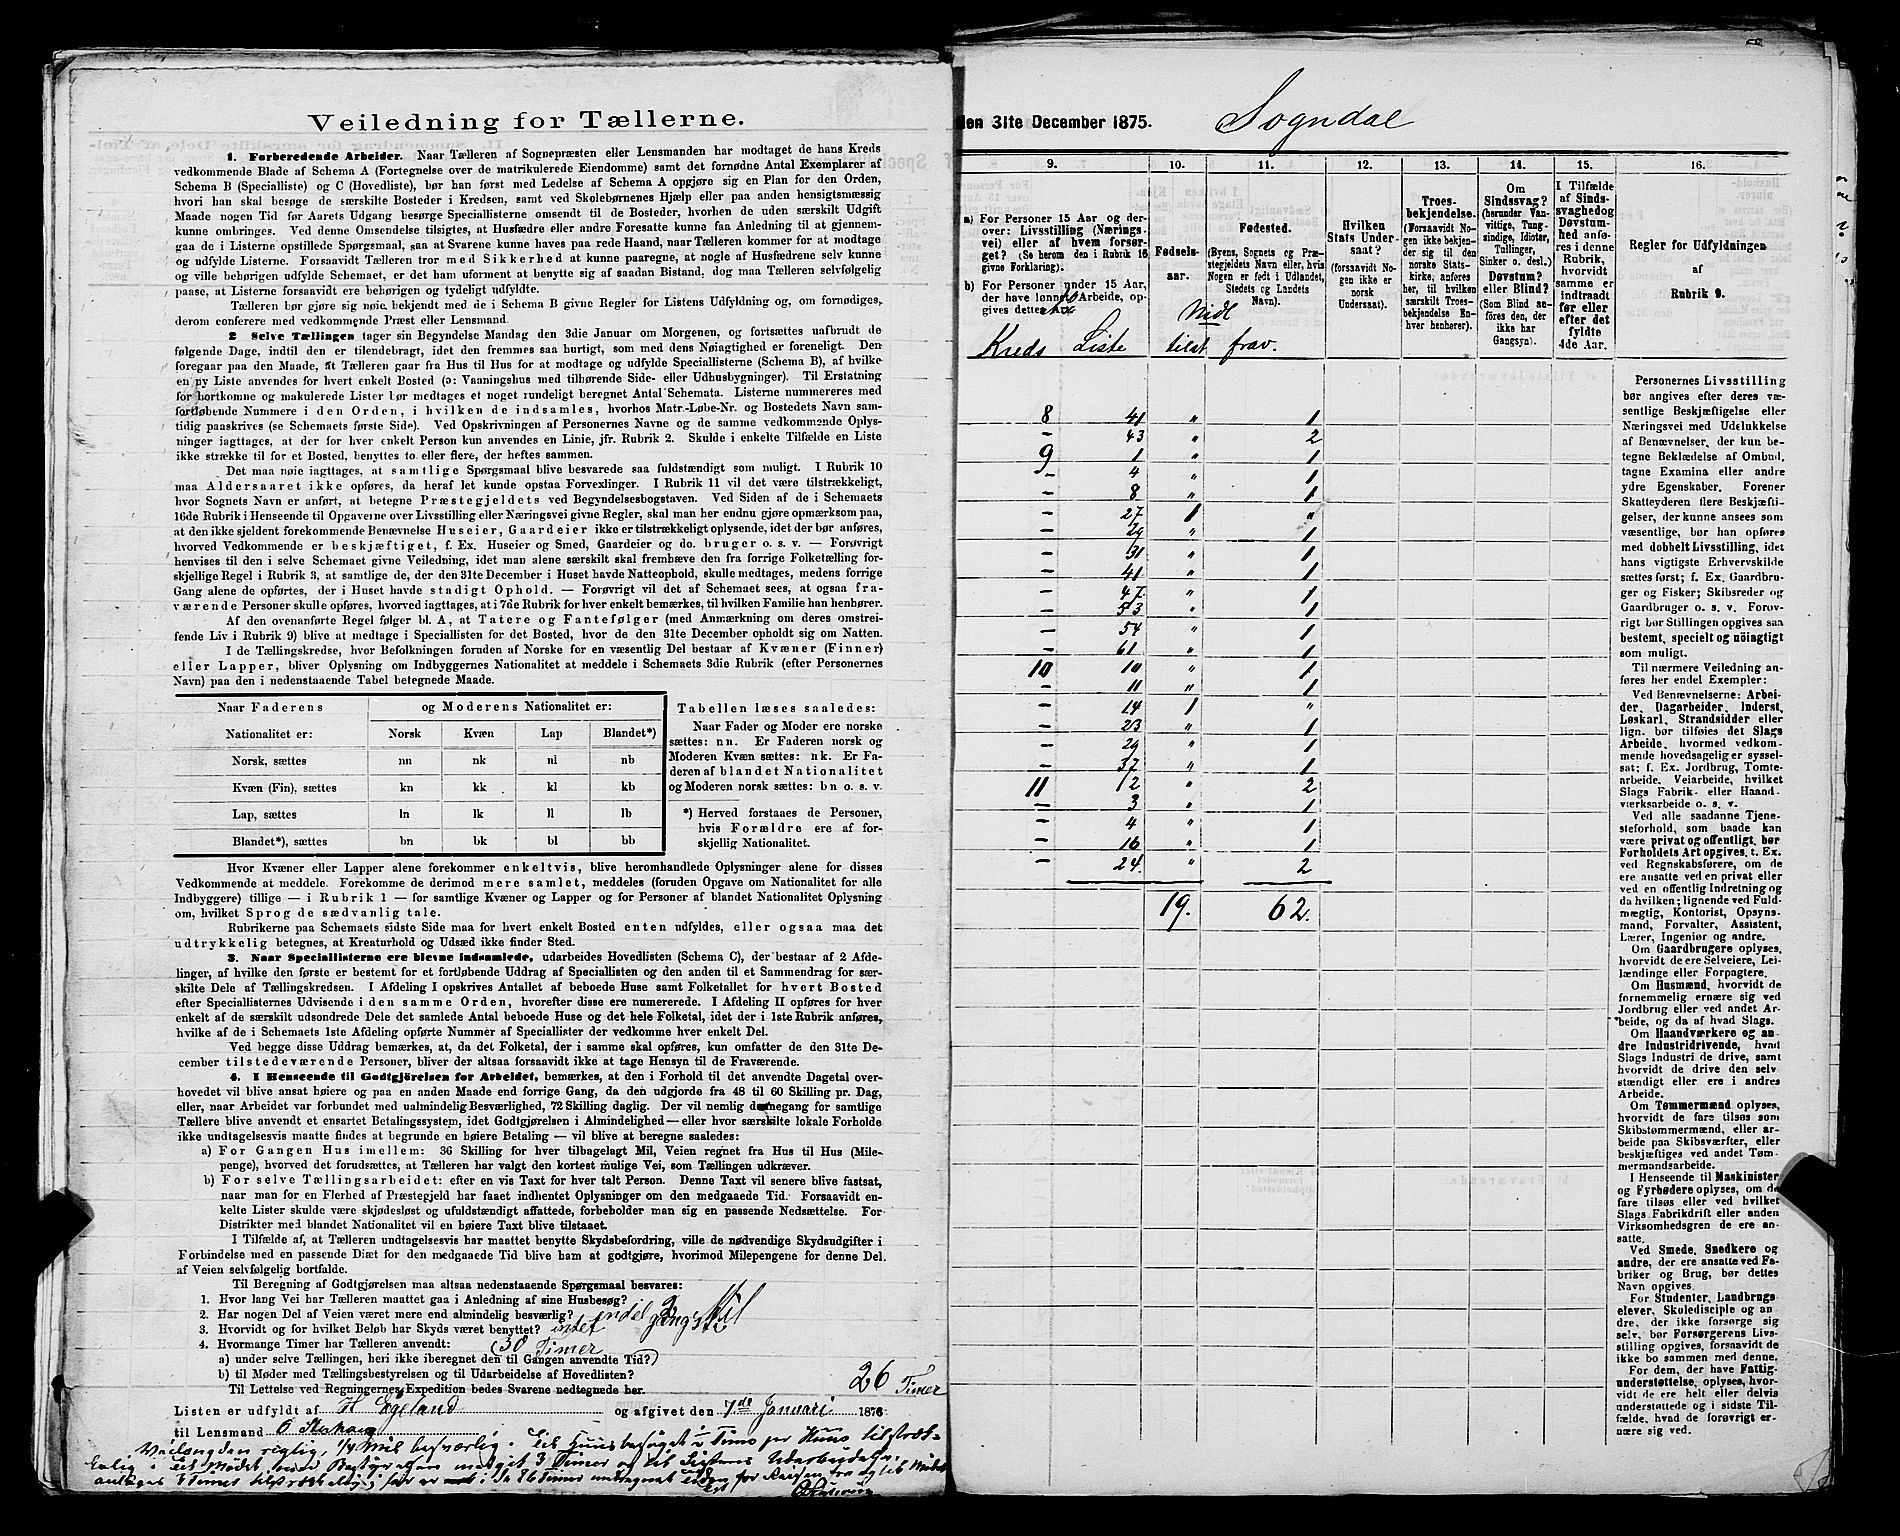 Veiledning for Tællerne.
1. Forberedende Arbeider. Naar Tælleren af Sognepræsten eller Lensmanden har modtaget de hans Kreds
vedkommende Blade af Schema A (Fortegnelse over de matrikulerede Eiendomme) samt det fornødne Antal Exemplarer af
Schema B (Specialliste) og C (Hovedliste), bør han først med Ledelse af Schema A opgjøre sig en Plan for den Orden,
hvori han skal besøge de særskilte Bosteder i Kredsen, samt ved Skolebørnenes Hjælp eller paa anden hensigtsmæssig
Maade nogen Tid før Aarets Udgang besørge Speciallisterne omsendt til de Bosteder, hvorhen de uden særskilt Udgift
kunne ombringes. Ved denne Omsendelse tilsigtes, at Husfædre eller andre Foresatte kunne faa Anledning til at gjennem-
gaa de i Listerne opstillede Spørgsmaal, saa at Svarene kunne haves paa rede Haand, naar Tælleren kommer for at modtage
og udfylde Listerne. Forsaavidt Tælleren tror med Sikkerhed at kunne paaregne, at nogle af Husfædrene selv kunne
og ville behørigen udfylde Schemaet, er det ham uforment at benytte sig af saadan Bistand, dog maa Tælleren selvfølgelig
paase, at Listerne forsaavidt ere behørigen og tydeligt udfyldte.
Tælleren bør gjøre sig nøie bekjendt med de i Schema B givne Regler for Listens Udfyldning og, om fornødiges,
derom conferere med vedkommende Præst eller Lensmand.
2 Selve Tællingen tager sin Begyndelse Mandag den 3die Januar om Morgenen, og fortsættes uafbrudt de
følgende Dage, indtil den er tilendebragt, idet den fremmes saa hurtigt, som med dens Nøiagtighed er foreneligt. Den
foregaar paa den Maade, at Tælleren gaar fra Hus til Hus for at modtage og udfylde Speciallisterne (Schema B), af hvilke
en ny Liste anvendes for hvert enkelt Bosted (ɔ: Vaaningshus med tilhørende Side- eller Udhusbygninger). Til Erstatning
for bortkomne og makulerede Lister bør medtages et noget rundeligt beregnet Antal Schemata. Listerne nummereres med
fortløbende Nummere i den Orden, i hvilken de indsamles, hvorhos Matr.-Løbe-Nr. og Bostedets Navn sam-
tidig paaskrives (se Schemaets første Side). Ved Opskrivningen af Personernes Navne og de samme vedkommende Oplys-
ninger iagttages, at der for hver enkelt Person kun anvendes en Linie, jfr. Rubrik 2. Skulde i enkelte Tilfælde en Liste
ikke strække til for et Bosted, benyttes to eller flere, der heftes sammen.
Det maa nøie iagttages, at samtlige Spørgsmaal blive besvarede saa fuldstændigt som muligt. I Rubrik 10
maa Aldersaaret ikke opføres, da heraf let kunde opstaa Forvexlinger. I Rubrik 11 vil det være tilstrækkeligt,
hvor Sognets Navn er anført, at betegne Præstegjeldets ved Begyndelsesbogstaven. Ved Siden af de i Schemaets
16de Rubrik i Henseende til Opgaverne over Livsstilling eller Næringsvei givne Regler, skal man her endnu gjøre opmærksom paa,
at den ikke sjeldent forekommende Benævnelse Huseier, Gaardeier ikke er tilstrækkeligt oplysende, idet der bør anføres,
hvorved Vedkommende er beskjæftiget, f. Ex. Huseier og Smed, Gaardeier og do. bruger o. s. v. — Forøvrigt
henvises til den i selve Schemaet givne Veiledning, idet man alene særskilt skal fremhæve den fra forrige Folketælling for-
skjellige Regel i Rubrik 3, at samtlige de, der den 31te December i Huset havde Natteophold, skulle medtages, medens forrige
Gang alene de opførtes, der i Huset havde stadigt Ophold. — Forøvrigt vil det af Schemaet sees, at ogsaa fra-
værende Personer skulle opføres, hvorved iagttages, at i 7de Rubrik for hver enkelt bemærkes, til hvilken Familie han henhører.
Af den ovenanførte Regel følger bl. A, at Tatere og Fantefølger (med Anmærkning om deres omstrei-
fende Liv i Rubrik 9) blive at medtage i Speciallisten for det Bosted, hvor de den 31te December opholdt sig om Natten.
I de Tællingskredse, hvor Befolkningen foruden af Norske for en væsentlig Del bestaar af Kvæner (Finner)
eller Lapper, bliver Oplysning om Indbyggernes Nationalitet at meddele i Schemaets 3die Rubrik (efter Personernes
Navn) paa den i nedenstaaende Tabel betegnede Maade.
Naar Faderens og Moderens Nationalitet er:
Nationalitet er: Norsk Kvæn Lap Blandet*)
Norsk, sættes nn nk nl nb
Kvæn (Fin), sættes kn kk kl kb
Lap, sættes ln lk ll lb
Blandet*), sættes bn bk bl bb
Tabellen læses saaledes:
Naar Fader og Moder ere norske
sættes: nn. Er Faderen norsk og
Moderen Kvæn sættes: nk. Er Fa-
deren af blandet Nationalitet
og Moderen norsk sættes: bn o. s. v.
*) Herved forstaaes de Personer,
hvis Forældre ere af for-
skjellig Nationalitet.
Hvor Kvæner eller Lapper alene forekommer enkeltvis, blive heromhandlede Oplysninger alene for disses
Vedkommende at meddele. Forekomme de derimod mere samlet, meddeles (foruden Opgave om Nationalitet for alle
Indbyggere) tillige — i Rubrik 1 — for samtlige Kvæner og Lapper og for Personer af blandet Nationalitet Oplysning
om, hvilket Sprog de sædvanlig tale.
Rubrikerne paa Schemaets sidste Side maa for hvert enkelt Bosted enten udfyldes, eller ogsaa maa det
udtrykkelig betegnes, at Kreaturhold og Udsæd ikke finder Sted.
3. Naar Speciallisterne ere blevne indsamlede, udarbeides Hovedlisten (Schema C), der bestaar af 2 Afde-
linger, af hvilke den første er bestemt for et fortløbende Uddrag af Speciallisten og den anden til et Sammendrag for sær-
skilte Dele af Tællingskredsen. I Afdeling I opskrives Antallet af beboede Huse samt Folketallet for hvert Bosted
efter Speciallisternes Udvisende i den samme Orden, hvorefter disse ere numererede. I Afdeling II opføres for hver
enkelt af de særskilt udsondrede Dele det samlede Antal beboede Huse og det hele Folketal, idet der i 1ste Rubrik anføres,
hvilke af de i Schemaets 1ste Afdeling opførte Nummer af Speciallister der vedkomme hver enkelt Del.
Ved begge disse Uddrag bemærkes, at, da det Folketal, der i samme skal opføres, kun omfatter de den 31te De-
cember tilstedeværende Personer, bliver der altsaa forsaavidt ikke at tage Hensyn til de Fraværende.
4. I Henseende til Godtgjörelsen for Arbeidet, bemærkes, at den i Forhold til det anvendte Dagetal over-
hovedet vil blive ansat høiere og paa en anden Maade end forrige Gang, da den udgjorde fra 48 til 60 Skilling pr. Dag,
eller, naar Arbeidet var forbundet med ualmindelig Besværlighed, 72 Skilling daglig. Der vil nemlig dennegang for samtlige
Tællere blive anvendt et ensartet Betalingssystem, idet Godtgjørelsen i Almindelighed — eller hvor særskilte lokale Forholde
ikke undtagelsesvis maatte findes at begrunde en høiere Betaling — vil blive at beregne saaledes:
a) For Gangen Hus imellem: 36 Skilling for hver tilbagelagt Mil, Veien regnet fra Hus til Hus (Mile-
penge), hvorved det forudsættes, at Tælleren har valgt den kortest mulige Vei, som Tællingen udkræver.
b) For selve Tællingsarbeidet: efter en vis Taxt for hver talt Person. Denne Taxt vil senere blive fastsat,
naar man for en Flerhed af Præstegjeld har faaet indhentet Oplysninger om den medgaaede Tid. Forsaavidt en-
kelte Lister skulde være skjødesløst og ufuldstændigt affattede, forbeholder man sig en passende Nedsættelse. For
Distrikter med blandet Nationalitet vil en høiere Taxt blive tilstaaet.
I Tilfælde af, at Tælleren undtagelsesvis har maattet benytte Skydsbefordring, ville de nødvendige Skydsudgifter i
Forbindelse med en passende Diæt for den medgaaede Tid blive ham at godtgjøre, hvorimod Milepengene for denne Del
af Veien selvfølgelig bortfalde.
Til Beregning af Godtgjørelsen maa altsaa nedenstaaende Spørgsmaal besvares:
1. Hvor lang Vei har Tælleren maattet gaa i Anledning af sine Husbesøg? 2 Mil
2. Har nogen Del af Veien været mere end almindelig besværlig? endel
3. Hvorvidt og for hvilket Beløb har Skyds været benyttet? intet
4. Hvormange Timer har Tælleren anvendt: (30 Timer
a) under selve Tællingen, heri ikke iberegnet den til Gangen anvendte Tid?)
b) til Møder med Tællingsbestyrelsen og til Udarbeidelse af Hovedlisten? 26 Timer
Til Lettelse ved Regningernes Expedition bedes Svarene nedtegnede her.
Listen er udfyldt af H Egeland og afgivet den 7de Januari 1876
til Lensmand
Veilængden rigtig, 1/4 Mil besværlig.
den 31te December 1875. Sogndal
9. 10. 11. 12. 13. 14. 15. 16.
a) For Personer 15 Aar og der-
over: Livsstilling (Nærings-
vei) eller af hvem forsør-
get? (Se herom den i Rubrik 16
givne Forklaring).
b) For Personer under 15 Aar,
der have lønnet Arbeide, op-
gives dette
Fødsels-
aar.
Fødested.
(Byens, Sognets og Præ-
stegjeldets Navn eller, hvis
Nogen er født i Udlandet,
Stedets og Landets
Navn).
Hvilken
Stats Under-
saat?
(forsaavidt No-
gen ikke er
norsk
Undersaat).
Troes-
bekjendelse.
(Forsaavidt No-
gen ikke bekjen-
der sig til den
norske Stats-
kirke, anføres
her, til hvilken
særskilt Troes-
bekjendelse En-
hver henhører).
Om
Sindssvag?
(herunder Van-
vittige, Tung-
sindige, Idioter,
Tullinger,
Sinker o. desl.)
Døvstum?
eller Blind?
(Som Blind an-
føres den, der
ikke har
Gangsyn).
I Tilfælde
af Sinds-
svaghed og
Døvstum-
hed anfø-
res i denne
Rubrik,
hvorvidt
samme er
indtraadt
før eller
efter det
fyldte
4de Aar.
Regler for Udfyldningen
af
Rubrik 9.
Kreds Liste Midl
tilst frav.
8 41 " 1
– 43 " 2
9 1 " 1
– 4 " 1
– 8 " 1
– 27 1 "
– 29 " 1
– 31 " 1
– 41 " 1
– 47 " 1
– 53 " 1
– 54 " 1
– 61 " 1
10 10 " 1
– 11 " 1
– 14 1 "
– 23 " 1
– 29 " 1
– 37 " 1
11 2 " 2
– 3 " 1
– 4 " 1
– 16 " 1
– 24. " 2
19. 62.
Personernes Livsstilling
bør angives efter deres væ-
sentlige Beskjæftigelse eller
Næringsvei med Udelukkelse
af Benævnelser, der kun be-
tegne Beklædelse af Ombud,
tagne Examina eller andre
ydre Egenskaber. Forener
Skatteyderen flere Beskjæfti-
gelser, der kunne ansees som
væsentlige, bør han opføres
med dobbelt Livsstilling, idet
hans vigtigste Erhvervskilde
sættes først; f. Ex. Gaardbru-
ger og Fisker; Skibsreder og
Gaardbruger o. s. v. Forøv-
rigt bør Stillingen opgives saa
bestemt, specielt og nöiagtigt
som muligt.
Til nærmere Veiledning an-
føres her endel Exempler:
Ved Benævnelserne: Arbei-
der, Dagarbeider, Inderst,
Løskarl, Strandsidder eller
lign. bør tilføies det Slags
Arbeide, hvormed vedkom-
mende hovedsagelig er syssel-
sat; f. Ex. Jordbrug, Tomte-
arbeide, Veiarbeide, hvilket
Slags Fabrik- eller Haand-
værksarbeide o. s. v.
Ved alle saadanne Tjene-
steforhold, som baade kan
være privat og offentligt, bør
Forholdets Art opgives, t. Ex.
ved Regnskabsførere, om de
ere ansatte ved en privat eller
ved en offentlig Indretning og
da hvilken; lignende ved Fuld-
mægtig, Kontorist, Opsyns-
mand, Forvalter, Assistent,
Lærer, Ingeniør og andre.
Om Gaardbrugere oplyses,
hvorvidt de ere Selveiere, Lei-
lændinge eller Forpagtere.
Om Husmænd, hvorvidt de
fornemmelig ernære sig ved
Jordbrug eller ved andet Ar-
beide, og da af hvad Slags.
Om Haandværkere og an-
dre Industridrivende, hvad
Slags Industri de drive, samt
hvorvidt de drive den selv-
stændigt eller ere i andres
Arbeide.
Om Tømmermænd oplyses,
hvorvidt de fare tilsøs som
Skibstømmermænd, eller ar-
beide paa Skibsværfter, eller
beskjæftiges ved andet Tøm-
mermandsarbeide.
I Henseende til Maskinister
og Fyrbødere oplyses, om de
fare tilsøs eller ved hvilket
Slags Fabrikdrift eller anden
Virksomhedsgren de ere an-
satte.
Ved Smede, Snedkere og
andre, der ere ansatte ved Fa-
briker og Brug, bør dettes
Navn opgives.
For Studenter, Landbrugs-
elever, Skoledisciple og an-
dre, der ikke forsørge sig
selv, bør Forsørgerens Livs-
stilling opgives, forsaavidt de
ikke bo sammen med denne.
For dem, der have Fattig-
understøttelse, oplyses, hvor-
vidt de ere helt eller delvis
understøttede og i sidste Til-
fælde, hvad de forøvrigt er-
nære sig ved.